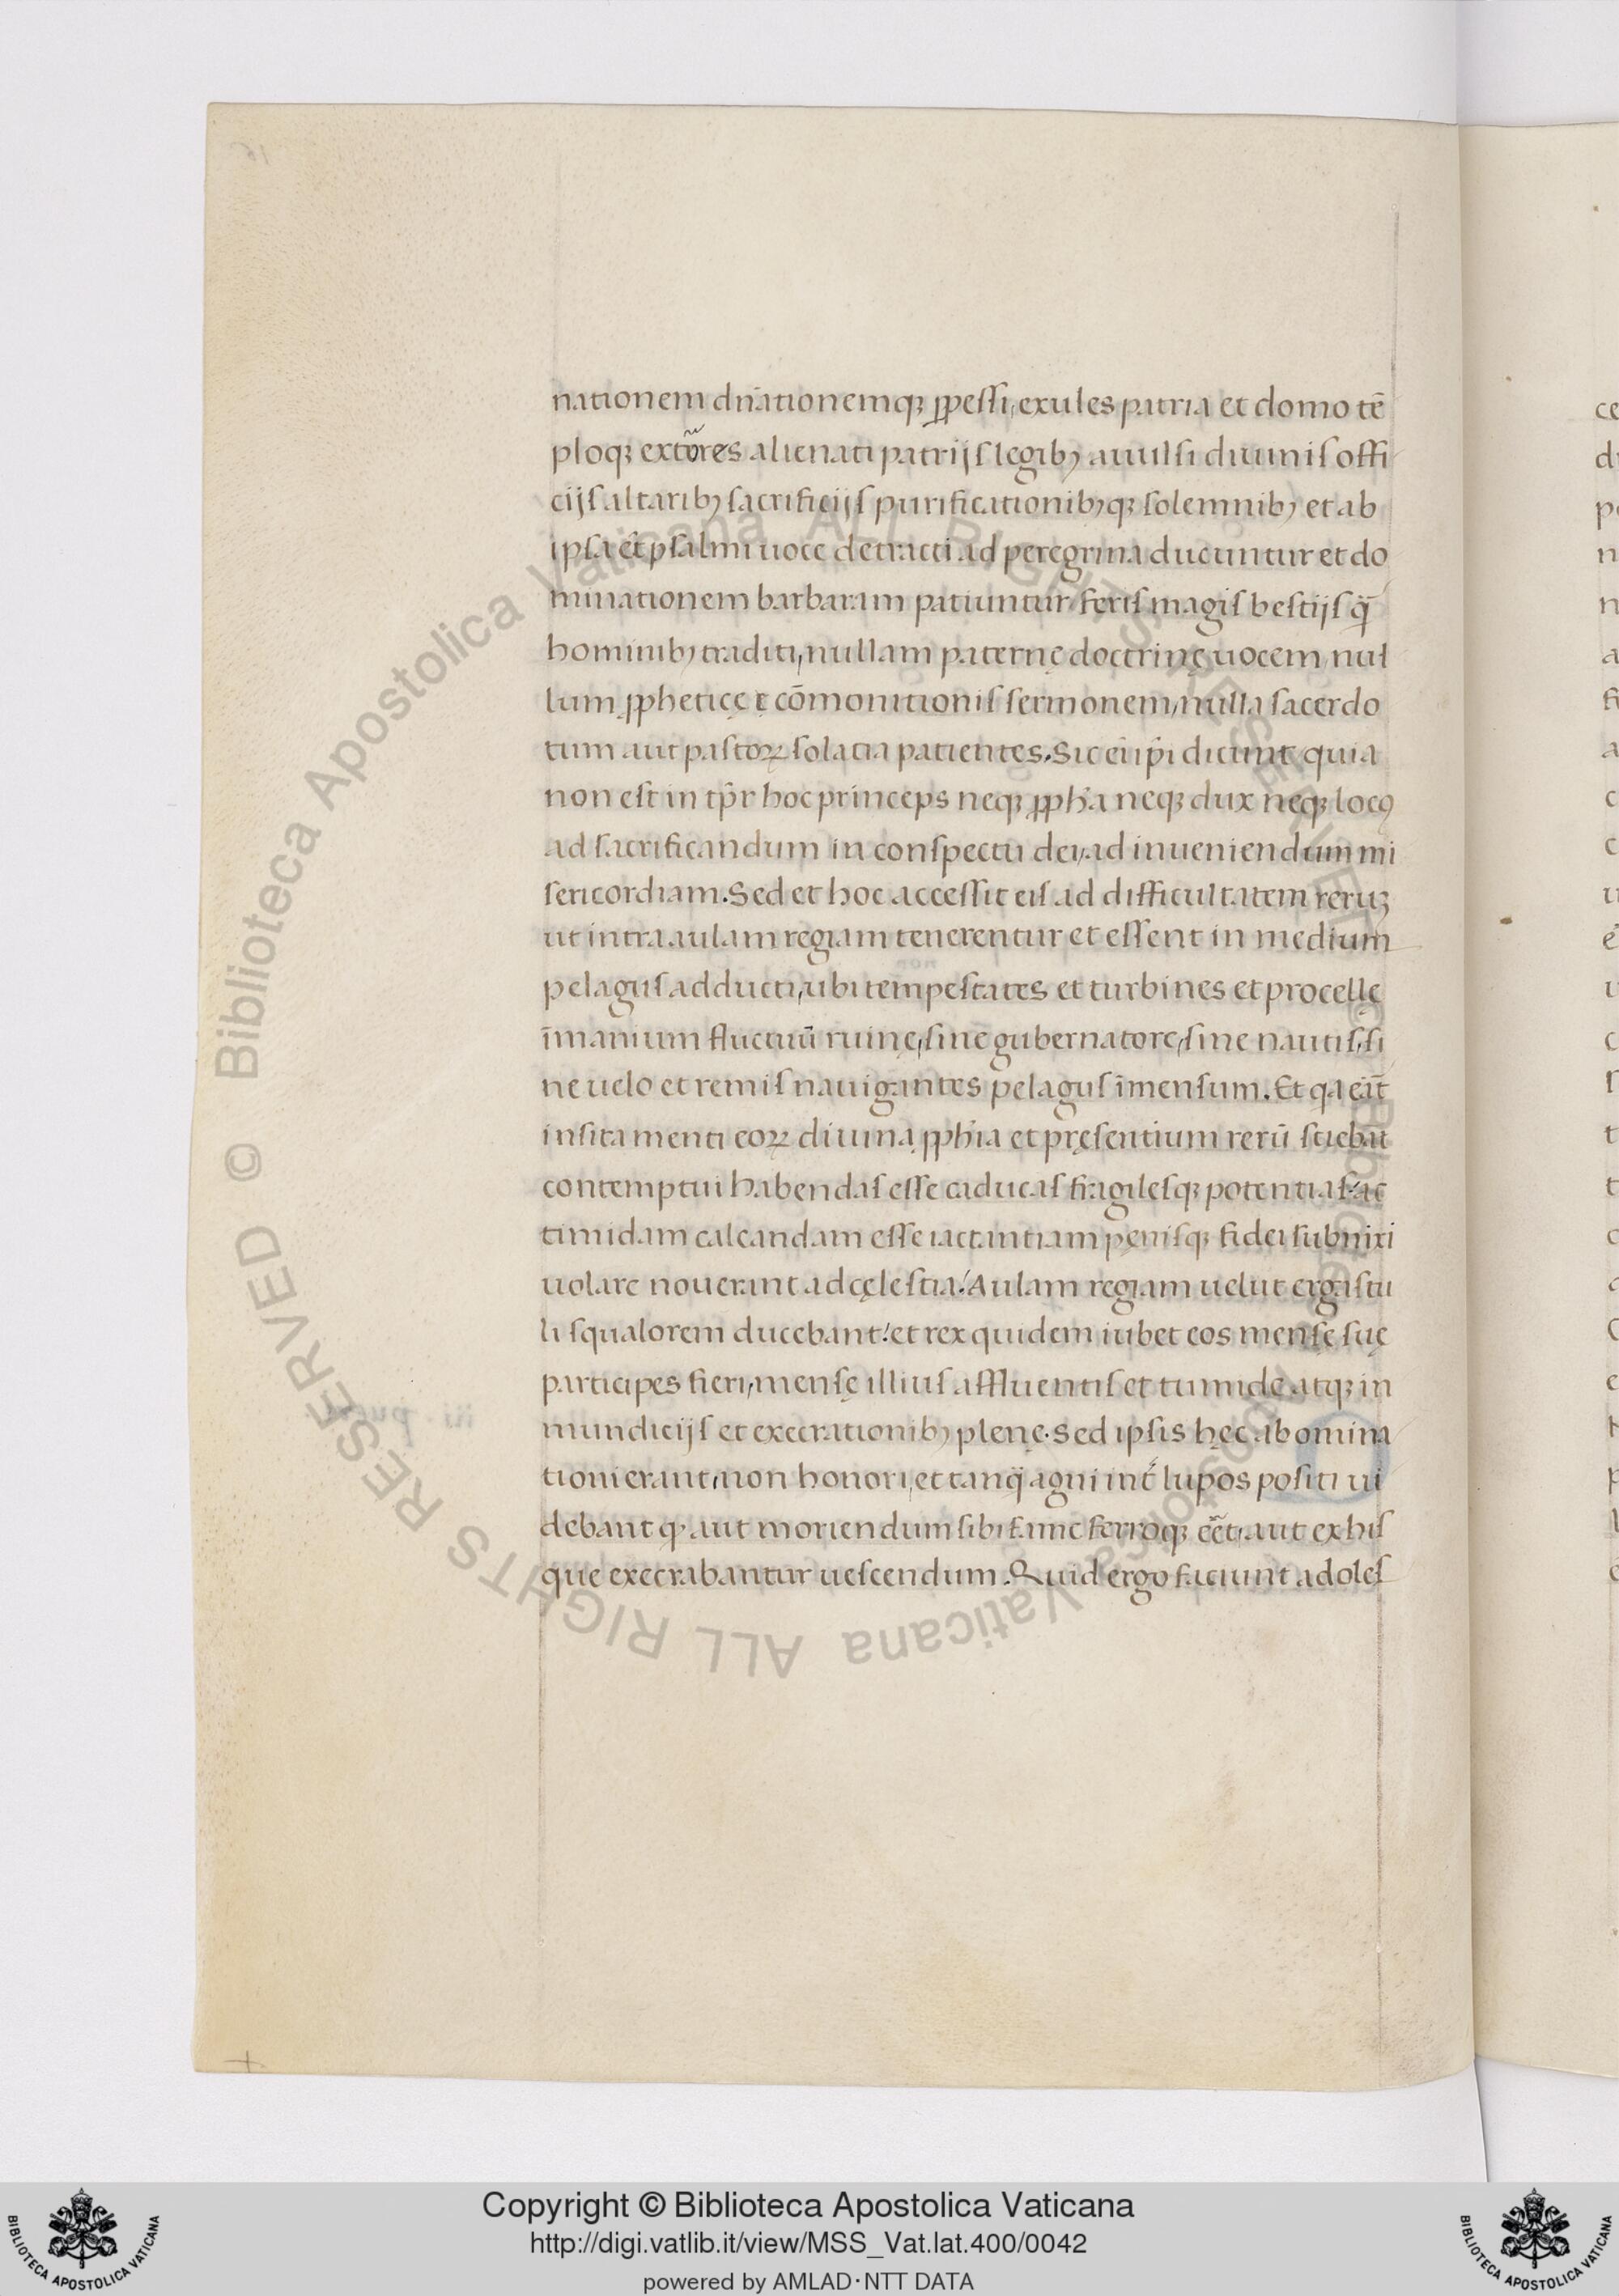 nationem dn̄ationemqꝫ ꝓpessi, exules patria et domo tē
ploqꝫ extōres alienati patrijs legibꝫ auulsi diuinis offi
cijs altaribꝫ sacrificijs purificationibꝫqꝫ solemnibꝫ et ab
ipsa et̄ psalmi uoce detracti ad peregrina ducuntur et do
minationem barbaram patiuntur feris magis bestijs q̄
hominibꝫ traditi, nullam paternę doctrinę uocem, nul
lum ꝓpheticę cōmonitionis sermonem, nulla sacerdo
tum aut pastoꝝ solatia patientes. Sic eī ip̄i dicunt quia
non est in tp̄r hoc princeps neqꝫ ꝓpha neqꝫ dux neqꝫ locꝰ
ad sacrificandum in conspectu dei, ad inueniendum mi
sericordiam. Sed et hoc accessit eis ad difficultatem reruꝫ
ut intra aulam regiam tenerentur et essent in medium
pelagus adducti, ubi tempestates et turbines et procellę
īmanium fluctuū ruinę, sine gubernatore, sine nautis, si
ne uelo et remis nauigantes pelagus īmensum. Et qa erāt
insita menti eoꝝ diuina ꝓphia et pręsentium rerū sciebāt
contemptui habendas esse caducas fragilesqꝫ potentias, ac
timidam calcandam esse iactantiam penisqꝫ fidei subnixi
uolare nouerant ad cęlestia! Aulam regiam uelut ergastu
li squalorem ducebant! et rex quidem iubet eos mensę suę
participes fieri, mensę illius affluentis et tumide atqꝫ in
mundicijs et execrationibꝫ plenę. Sed ipsis hęc abomina
tioni erant, non honori, et tanq̄ agni int̄ lupos positi ui
debant ꝙ aut moriendum sibi fame ferroqꝫ eēt, aut ex his
que execrabantur uescendum. Quid ergo faciunt adoles
Copyright © Biblioteca Apostolica Vaticana
http://digi.vatlib.it/view/MSS_Vat.lat.400/0042
powered by AMLAD·NTT DATA
BIBLIOTECA APOSTOLICA VATICANA
BIBLIOTECA APOSTOLICA VATICANA
© Biblioteca Apostolica Vaticana ALL RIGHTS RESERVED
© Biblioteca Apostolica Vaticana ALL RIGHTS RESERVED